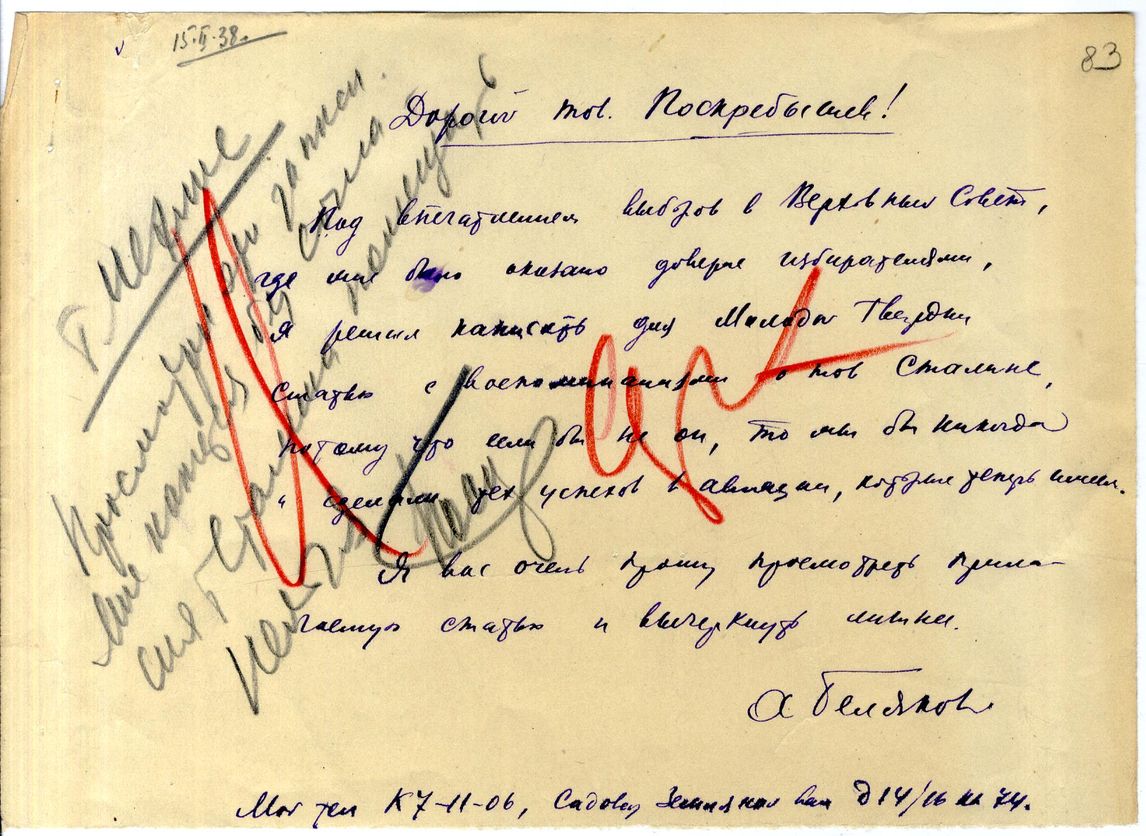 15.II.38.
83
Дорогой тов. Поскребышев!
Под впечатлением выборов в Верховный Совет,
где мне было оказано доверие избирателями,
я решил написать для Молодой Гвардии
статью с воспоминаниями о тов Сталине,
потому что если бы не он, то мы бы никогда
сделали тех успехов в авиации, которые теперь имеем.
Я вас очень прошу просмотреть прила-
гаемую статью и вычеркнуть лишнее.
А Беляков
Мой тел К7-11-06, Садовая Земляной вал д 14/16 кв 74.
Т. Мехлис
Просмотри эту запись.
Мне кажется
Сталина